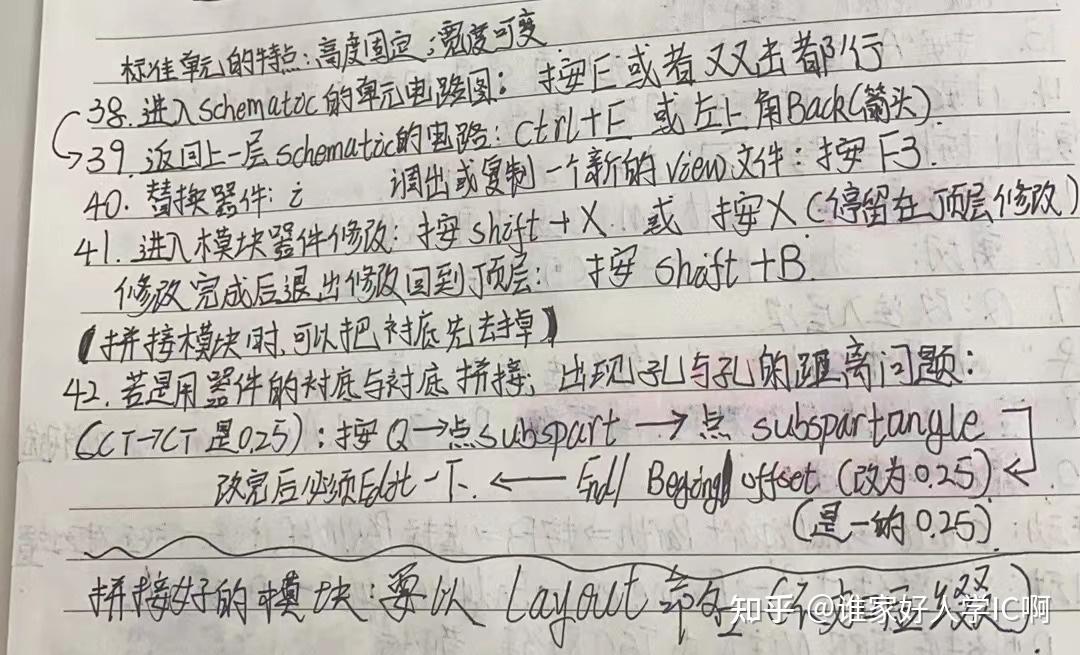 标准单元的特点：高度固定；宽度可变
38. 进入schematoc的单元电路图：按E或者双击都行
39. 返回上一层schematic的电路：ctrl+E 或左上角Back(箭头).
40. 替换器件：i 调出或复制一个新的view文件：按F3.
41. 进入模块器件修改：按shift+X. 或 按X(停留在顶层修改)
修改完成后退出修改回到顶层：按 shift+B.
【拼接模块时,可以把衬底先去掉】
42. 若是用器件的衬底与衬底拼接；出现孔与孔的距离问题：
(CT→CT 是0.25)：按Q→点subspart→点 subspartangle
改完后必须Edit一下. ← End/Beging offset (改为0.25)
(是一的0.25)
拼接好的模块：要以 Layout 命名
知乎 @谁家好人学IC啊